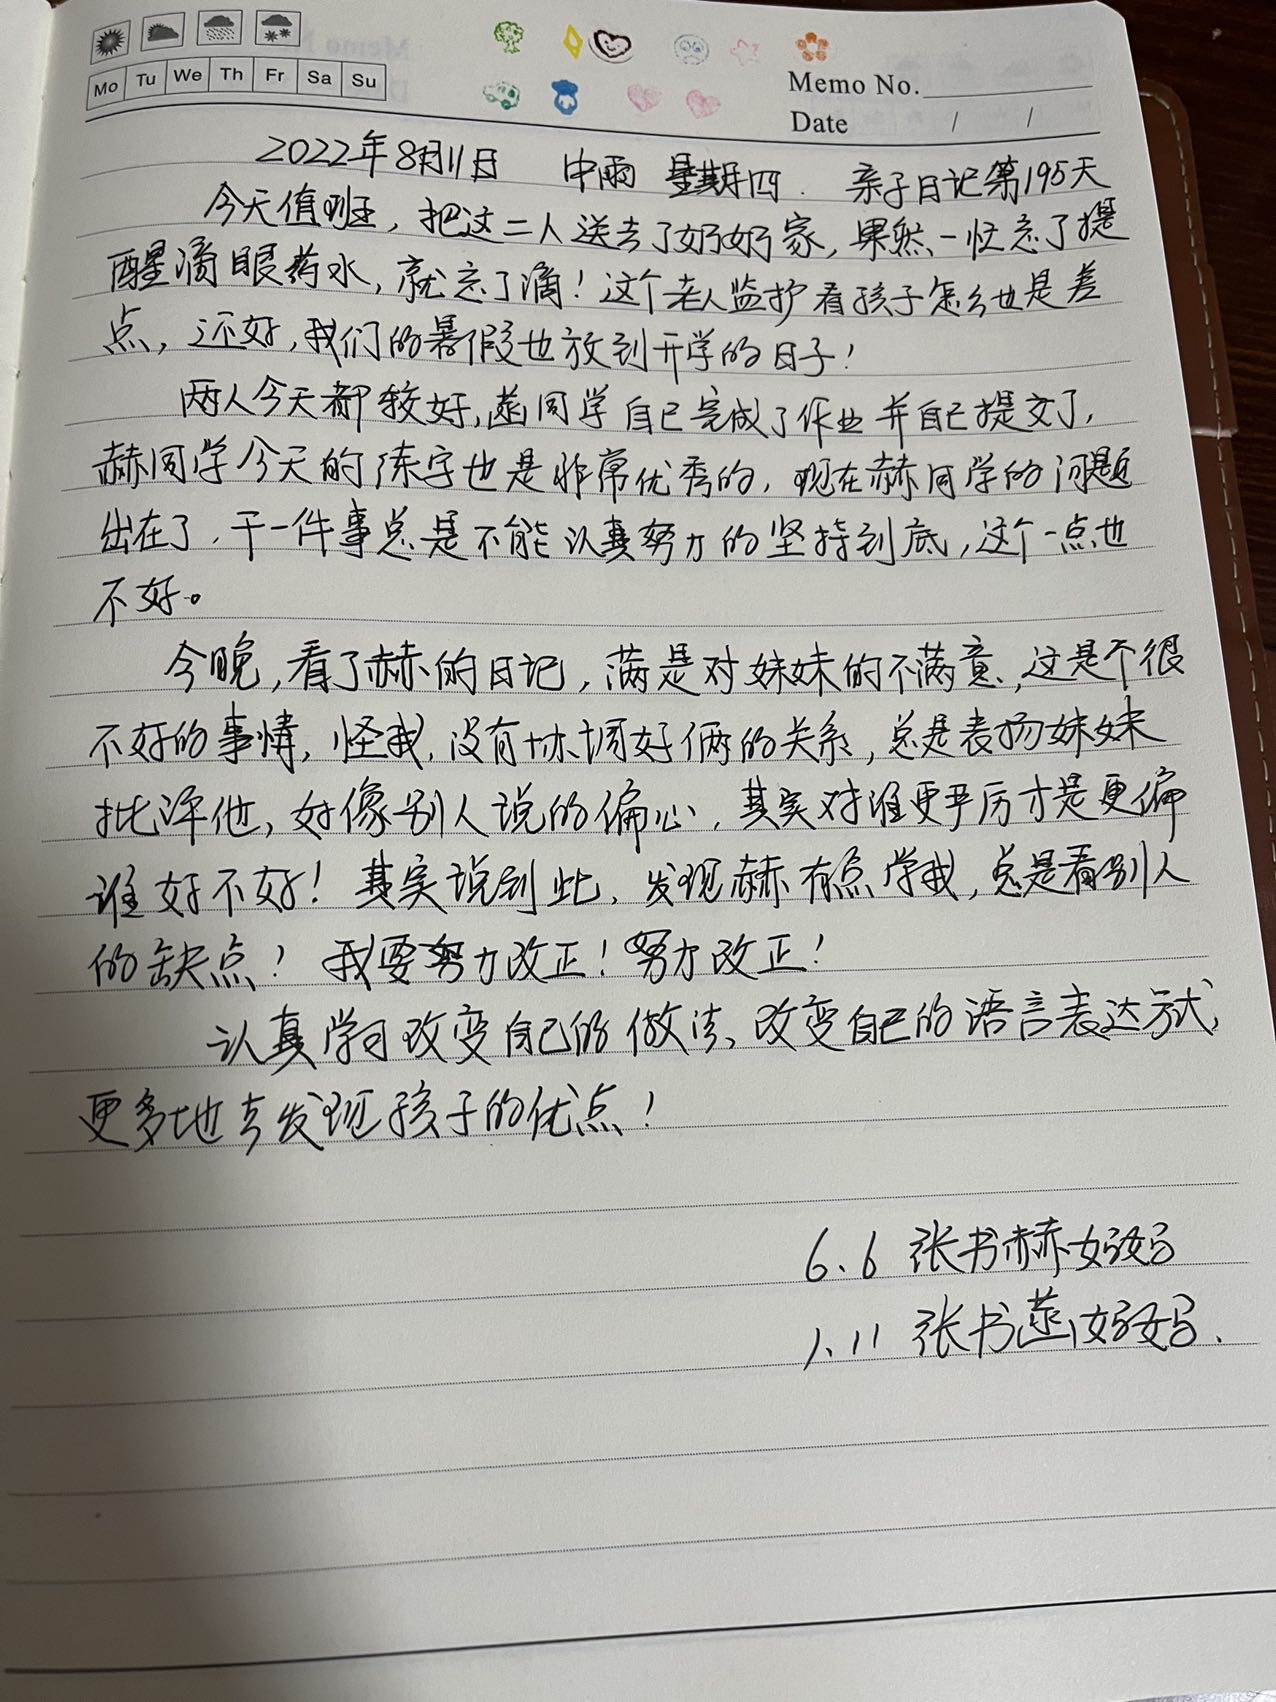 Mo Tu We Th Fr Sa Su
Memo No.
Date / /
2022年8月11日 中雨 星期四. 亲子日记第195天
今天值班，把这二人送去了奶奶家，果然一忙忘了提
醒滴眼药水，就忘了滴！这个老人监护看孩子怎么也是差
点，还好，我们的暑假也放到开学的日子！
两人今天都较好，菡同学自己完成了作业并自己提交了，
赫同学今天的练字也是非常优秀的，现在赫同学的问题
出在了，干一件事总是不能认真努力的坚持到底，这个一点也
不好。
今晚，看了赫的日记，满是对妹妹的不满意，这是个很
不好的事情，怪我，没有协调好俩的关系，总是表扬妹妹
批评他，好像别人说的偏心，其实对谁更严厉才是更偏
谁好不好！其实说到此，发现赫有点学我，总是看别人
的缺点！我要努力改正！努力改正！
认真学习改变自己的做法、改变自己的语言表达方式，
更多地去发现孩子的优点！
6.6 张书赫妈妈
1.11 张书菡妈妈.